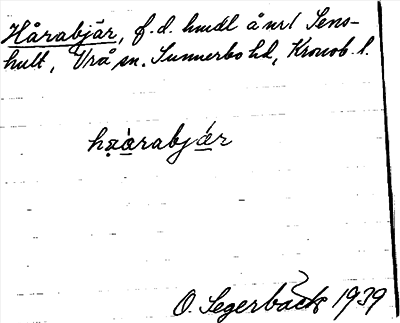 Hårabjär, f. d. hmdl å nr 1 Sens-
hult, Vrå sn. Sunnerbo hd, Kronob. l.
hạàrabjǽr
O. Segerbäck 1939